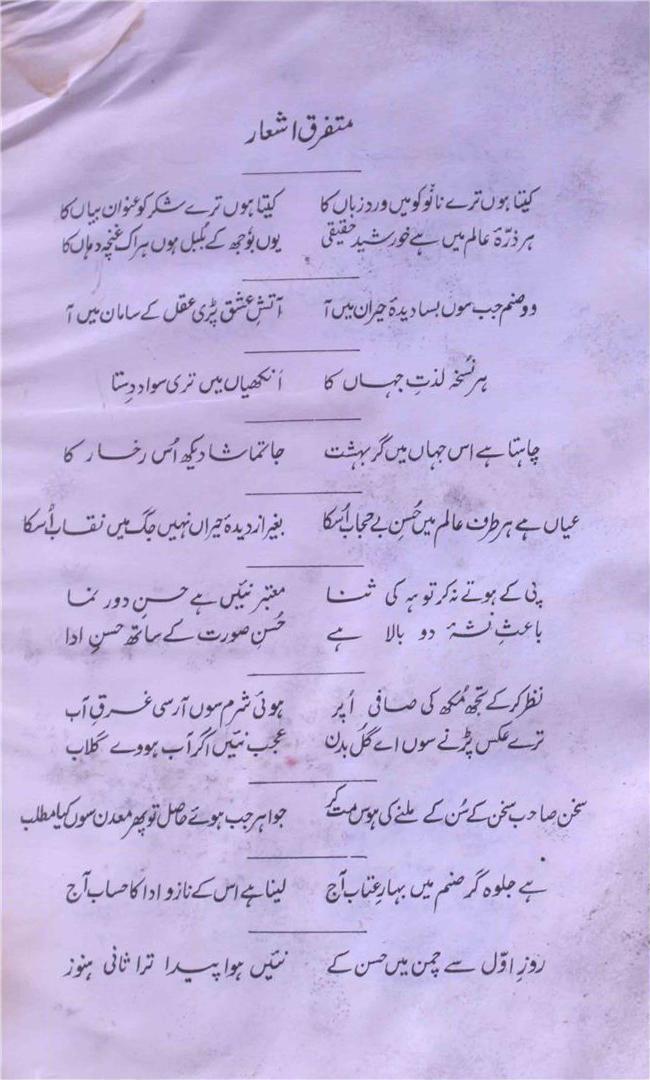 متفرق اشعار
کیتا ہوں ترے نانْو کو میں ورد زباں کا کیتا ہوں ترے شکر کو عنوان بیاں کا
ہر ذرّۂ عالم میں ہے خورشید حقیقی یوں بُوجھ کے بُلبل ہوں ہر اک غنچہ دہاں کا
وو صنم جب سوں بسا دیدۂ حیران میں آ آتشِ عشق پڑی عقل کے سامان میں آ
ہر نُسخہ لذتِ جہاں کا انکھیاں میں تری سواد دِستا
چاہتا ہے اس جہاں میں گر بہشت جا تماشا دیکھ اُس رخسار کا
عیاں ہے ہر طرف عالم میں حُسنِ بے حجاب اُسکا بغیر از دیدۂ حیراں نہیں جگ میں نقاب اُسکا
پی کے ہوتے نہ کر تو مہ کی ثنا معتبر نئیں ہے حسنِ دور نما
باعثِ نشۂ دو بالا ہے حُسنِ صورت کے ساتھ حسنِ ادا
نظر کر کے تجھ مُکھ کی صافی اُپر ہوئی شرم سوں آرسی غرقِ آب
ترے عکس پڑنے سوں اے گل بدن عجب نئیں اگر آب ہووے گلاب
سخن صاحب سخن کے سُن کے ملنے کی ہوس مت کر جواہر جب ہوئے حاصل تو پھر معدن سوں کیا مطلب
ہے جلوہ گر صنم میں بہارِ عتاب آج لینا ہے اس کے ناز و ادا کا حساب آج
روزِ اوّل سے چمن میں حسن کے نئیں ہوا پیدا ترا ثانی ہنوز